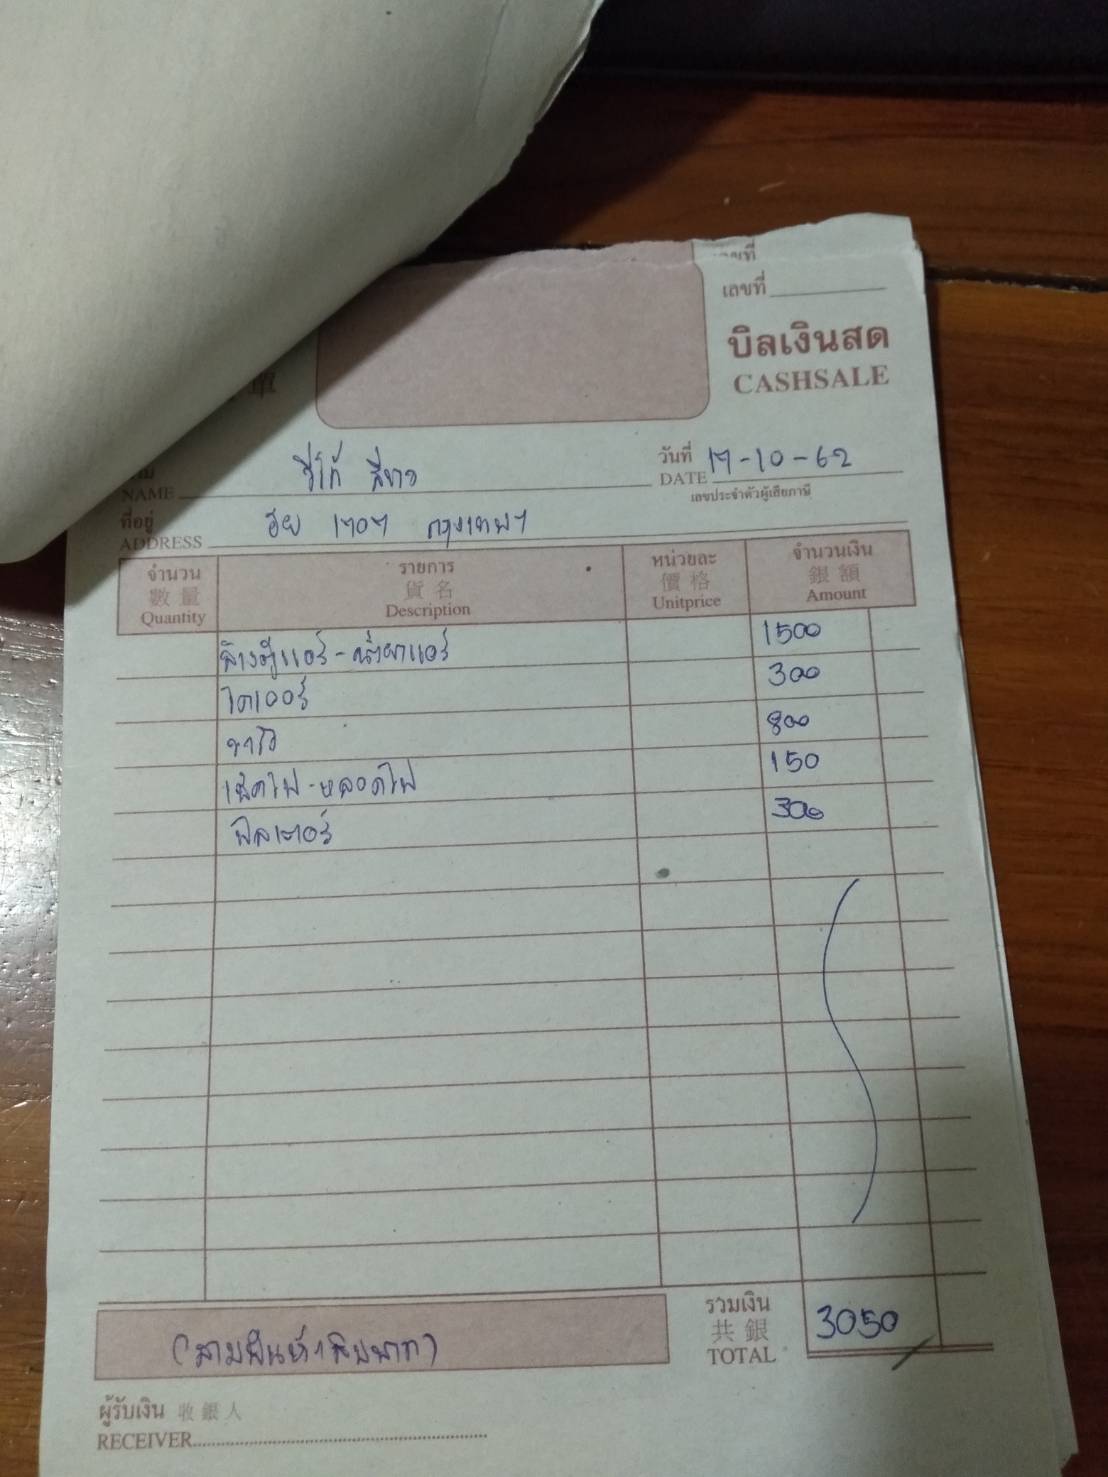 เลขที่
บิลเงินสด
CASHSALE
單
NAME วีโก้ สีขาว
วันที่ 17-10-62
DATE
เลขประจำตัวผู้เสียภาษี
ที่อยู่
ADDRESS กรุงเทพฯ
จำนวน รายการ หน่วยละ จำนวนเงิน
數量 貨名 價格 銀額
Quantity Description Unitprice Amount
ล้างตู้แอร์-น้ำยาแอร์ 1500
ไดเออร์ 300
วาล์ว 800
เช็คไฟ-หลอดไฟ 150
ฟิลเตอร์ 300
รวมเงิน
共銀 3050
TOTAL
(สามพันห้าสิบบาท)
ผู้รับเงิน 收銀人
RECEIVER